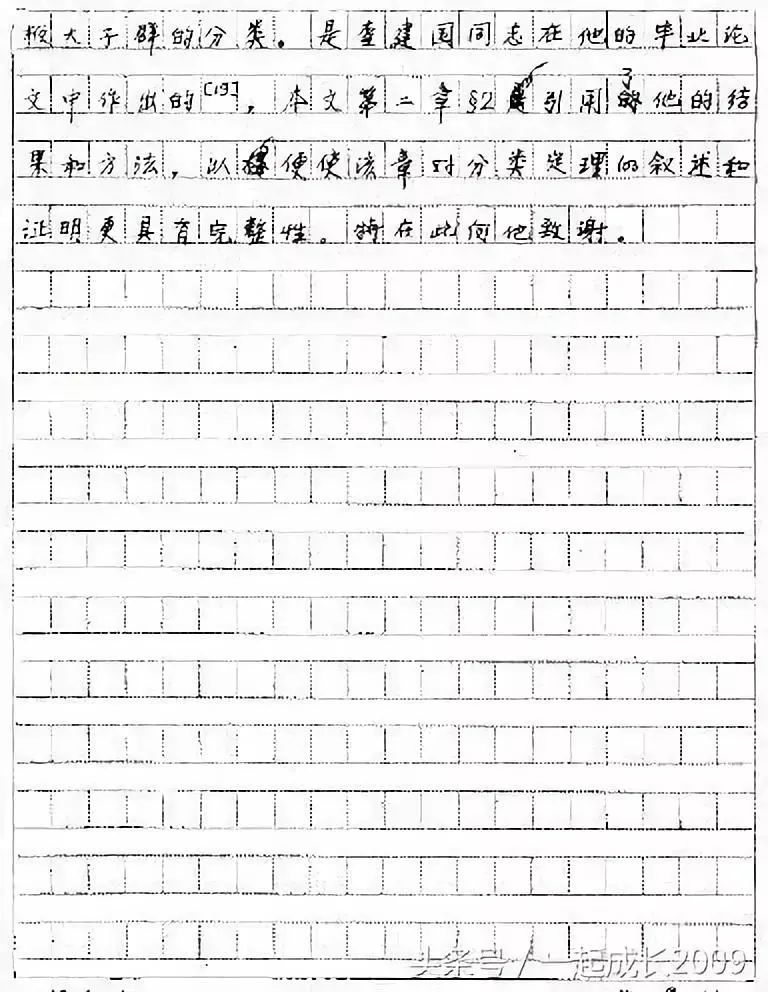 极大子群的分类。是查建国同志在他的毕业论
文中作出的[19],本文第二章§2引用了他的结
果和方法,以便使该章对分类定理的叙述和
证明更具有完整性。特在此向他致谢。
头条号/一起成长2009